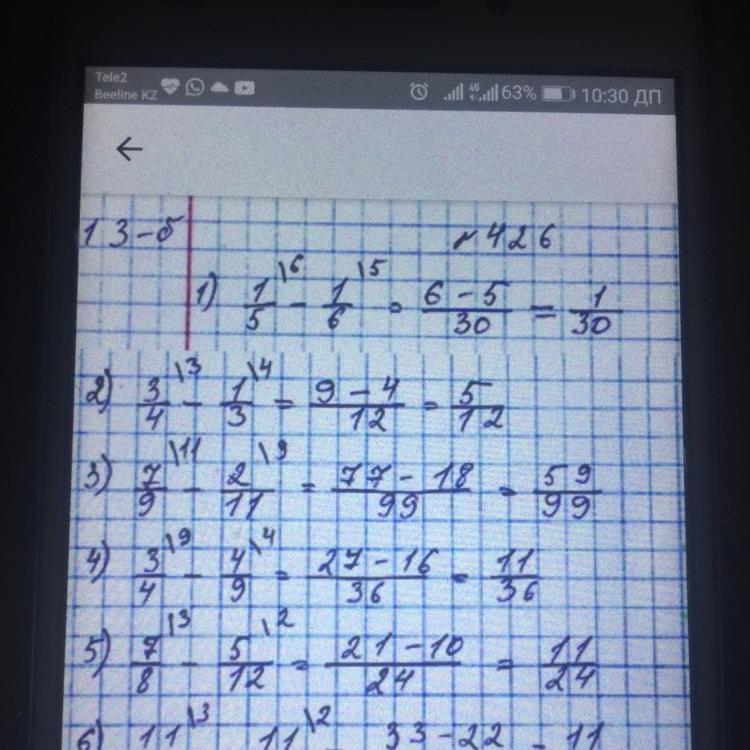 Tele2
Beeline KZ 4G 63% 10:30 ДП
13-б №426
1) 1/5 \6 - 1/6 \5 = (6-5)/30 = 1/30
2) 3/4 \3 - 1/3 \4 = (9-4)/12 = 5/12
3) 7/9 \11 - 2/11 \9 = (77-18)/99 = 59/99
4) 3/4 \9 - 4/9 \4 = (27-16)/36 = 11/36
5) 7/8 \3 - 5/12 \2 = (21-10)/24 = 11/24
6) 11 \3 - 11 \2 = 33-22 = 11